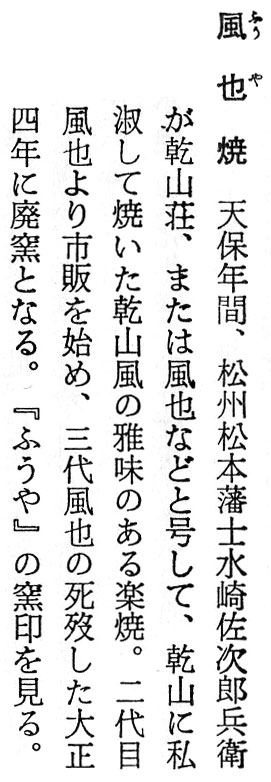 風也焼　天保年間、松州松本藩士水崎佐次郎兵衛
ふうや
が乾山荘、または風也などと号して、乾山に私
淑して焼いた乾山風の雅味のある楽焼。二代目
風也より市販を始め、三代風也の死歿した大正
四年に廃窯となる。『ふうや』の窯印を見る。